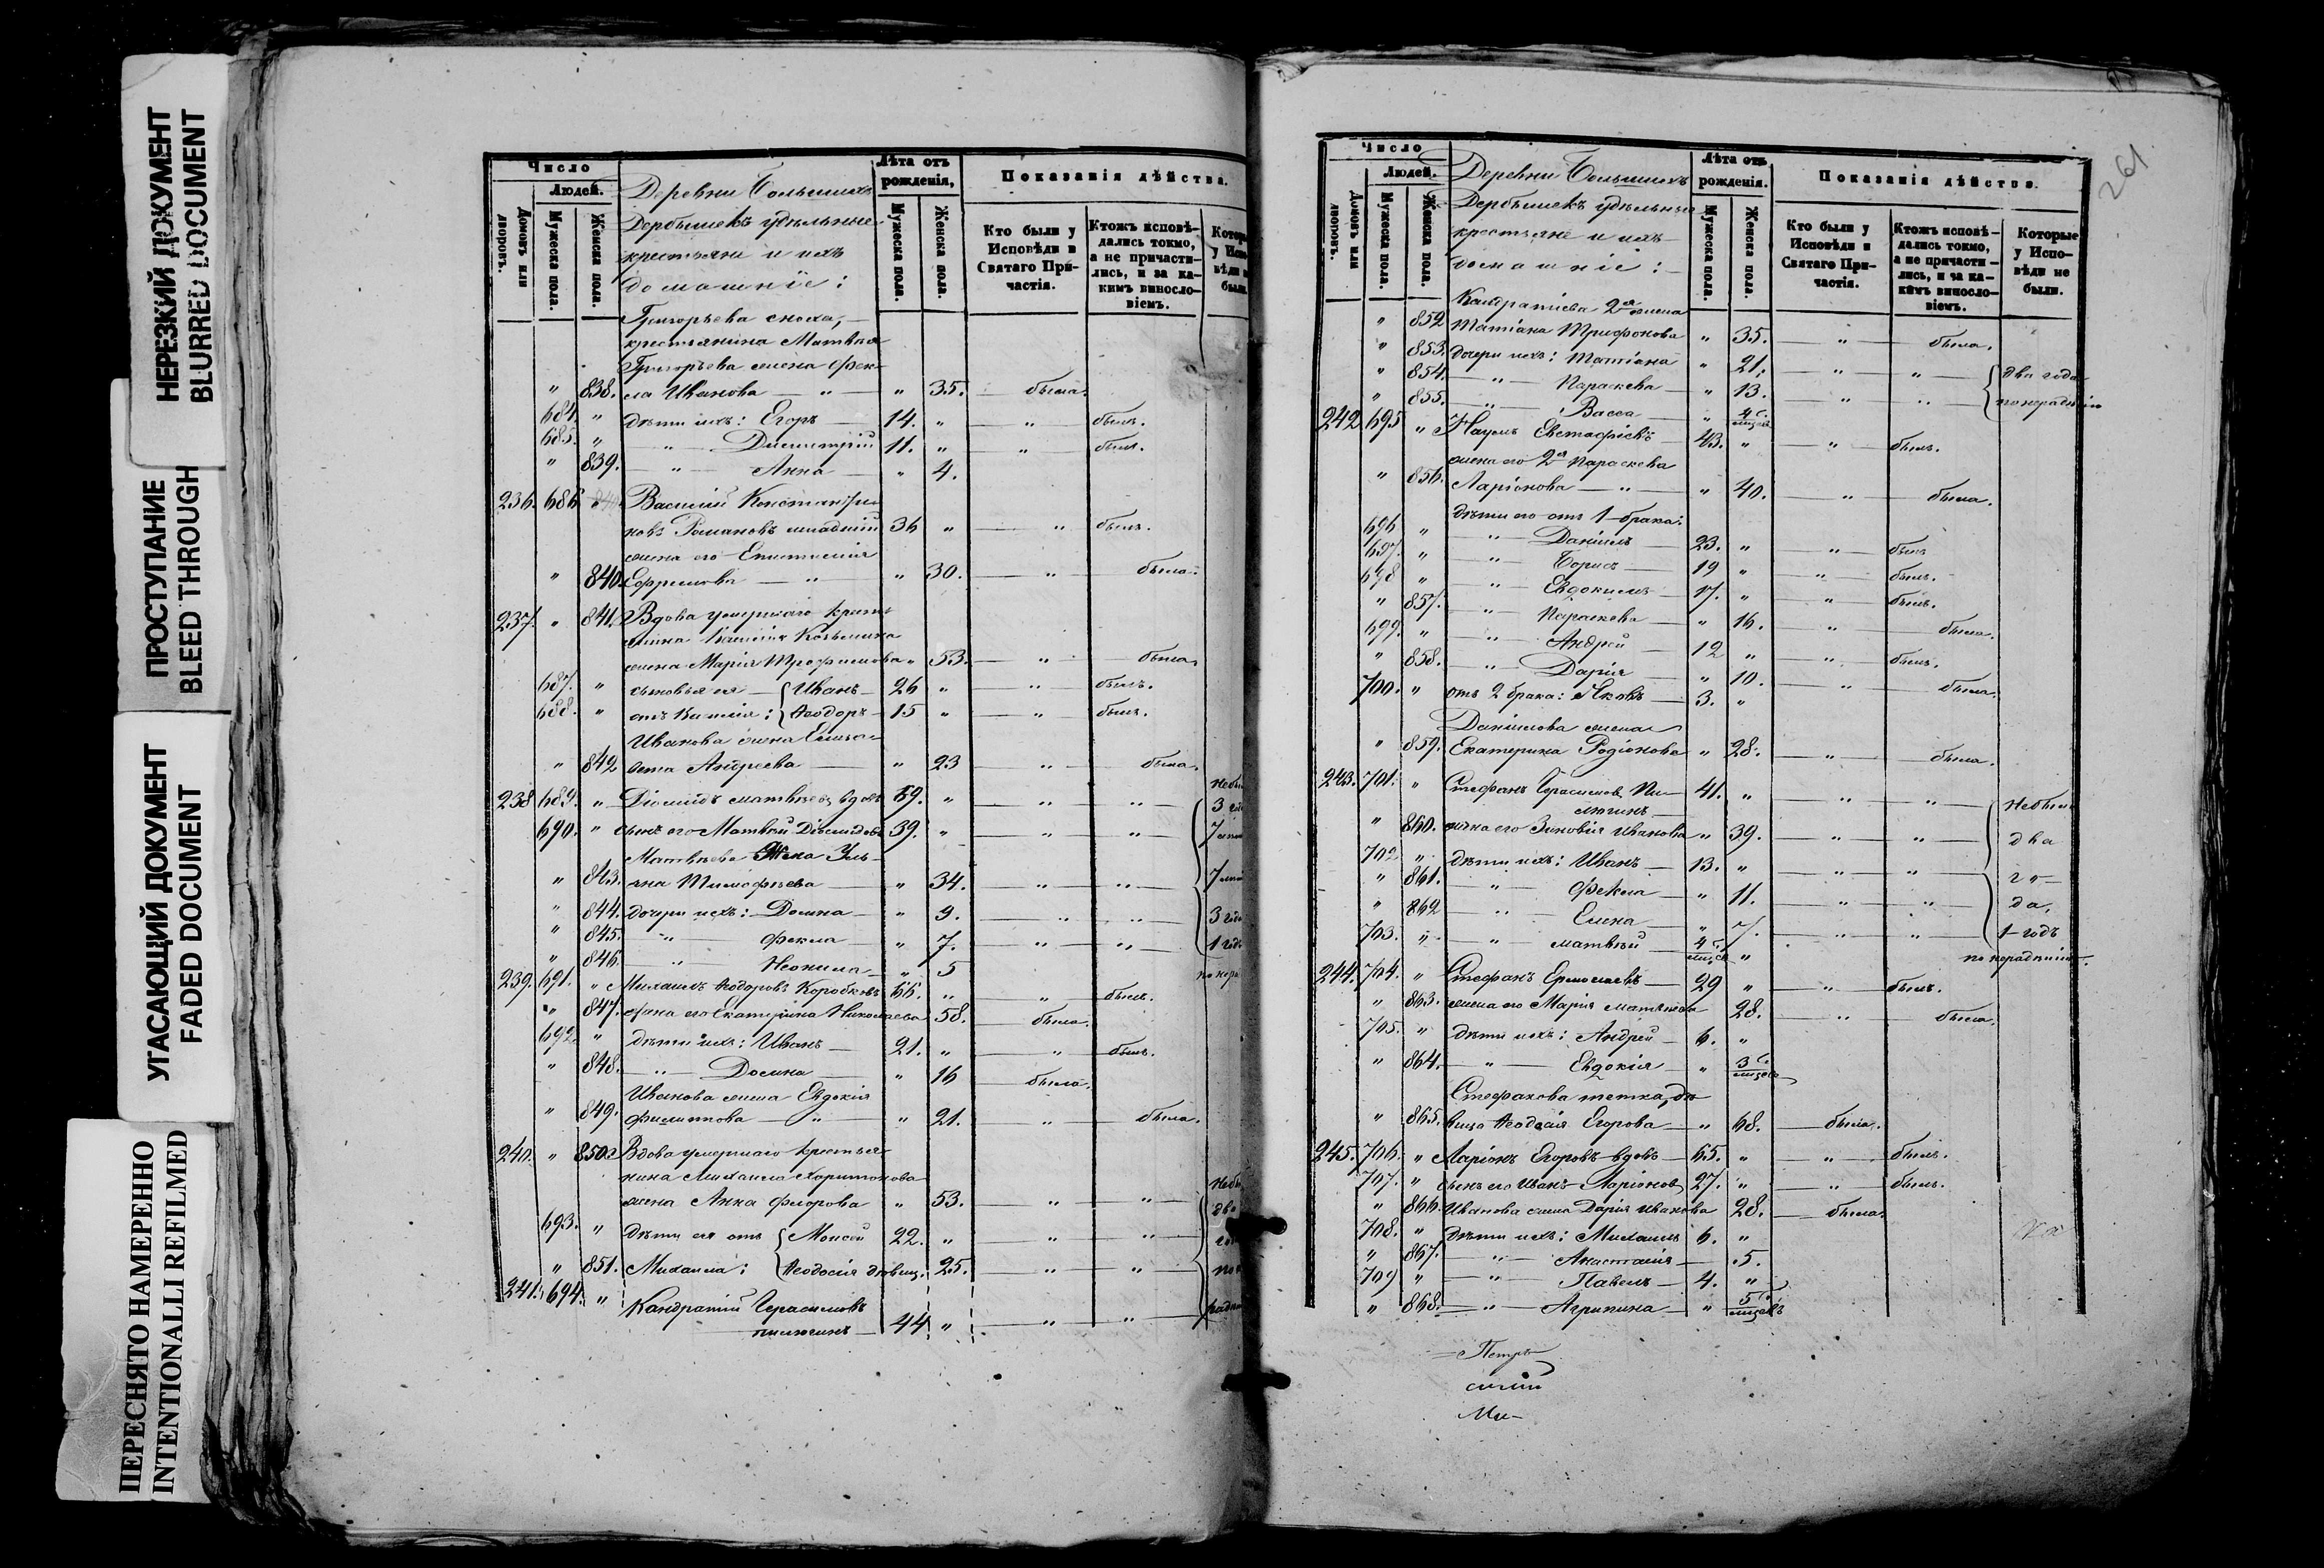 НЕРЕЗКИЙ ДОКУМЕНТ
BLURRED DOCUMENT
ПРОСТУПАНИЕ
BLEED THROUGH
УГАСАЮЩИЙ ДОКУМЕНТ
FADED DOCUMENT
ПЕРЕСНЯТО НАМЕРЕННО
INTENTIONALLI REFILMED
Число
Людей.
Домовъ или дворовъ.
Мужеска пола.
Женска пола.
Деревни Большихъ
Дербышекъ удѣльные
крестьяне и ихъ
домашніе:
Лѣта отъ рожденія,
Мужеска пола.
Женска пола.
Показанія дѣйства.
Кто были у Исповѣди и Святаго Причастія.
Ктожъ исповѣдались токмо, а не причастились, и за какимъ винословіемъ.
Григорьева сноха,
крестьянина Матвѣя
Григорьева жена Фек-
" 838. ла Иванова — " — " 35. была.
684. " дѣти ихъ: Егоръ 14. " " былъ.
685. " — " — Димитрій 11. " " былъ.
" 839. — " — Анна " 4.
236. 686 Василій Константи-
новъ Романовъ младшій 36 " " былъ.
жена его Епистимія
" 840. Ефремова — " — " 30. " была.
237. " 841. Вдова умершаго кресть-
жена Марія Трофимова " 53. " была.
687. " сыновья ея Иванъ 26 " " былъ.
688. " Ѳеодоръ 15 " " былъ.
Иванова жена Елиза-
" 842 вета Андреева " 23 " была.
238 689. " Діомидъ Матвѣевъ вдовъ 59. " " "
690. " сынъ его Матвѣй Діомидовъ 39. " " "
Матвѣева жена Уль-
" 843. яна Тимофѣева " 34. " "
" 844. дочери ихъ: Домна " 9. " "
" 845. — " — Фекла " 7. " "
" 846. — " — Неонила " 5
239. 691. " Михаилъ Ѳеодоровъ Коробковъ 66. " " былъ.
" 847. жена его Екатерина Николаева 58. была.
692. " дѣти ихъ: Иванъ 21. " " былъ.
" 848. — " — Домна " 16 была.
Иванова жена Евдокія
" 849. Филиппова — " — " 21. " была.
240. " 850. Вдова умершаго крестья-
нина Михаила Харитонова
жена Анна Флорова " 53. " "
693. " дѣти ея отъ Моисей 22. " " "
" 851. Михаила: Ѳеодосія дѣвица 25. " "
241. 694. " Кандратій Герасимовъ
Пилюгинъ 44 " " "
261
Число
Людей.
Домовъ или дворовъ.
Мужеска пола.
Женска пола.
Деревни Большихъ
Дербышекъ удѣльные
крестьяне и ихъ
домашніе:
Лѣта отъ рожденія.
Мужеска пола.
Женска пола.
Показанія дѣйства.
Кто были у Исповѣди и Святаго Причастія.
Ктожъ исповѣдались токмо, а не причастились, и за какимъ винословіемъ.
Которые у Исповѣди не были.
Кандратіева 2я жена
" 852 Татіана Трифонова " 35. " была.
" 853. дочери ихъ: Татіана " 21. " " два года
" 854. — " — Параскева " 13. " " по нерадѣнію
" 855. — " — Васса " 4 мѣсяц.
242 695 " Наумъ Евстафіевъ 43. " " былъ.
жена его 2я Параскева
" 856. Ларіонова — " — " 40. " была.
дѣти его отъ 1 брака:
696 " — " — Даніилъ 23. " " былъ
697. " — " — Борисъ 19 " " былъ.
698 " — " — Евдокимъ 17. " " былъ.
" 857. — " — Параскева " 16. " была.
699. " — " — Андрей 12 " " былъ.
" 858. — " — Дарія " 10. " была.
700. " отъ 2 брака: Яковъ 3. "
Даніилова жена
" 859. Екатерина Родіонова " 28. " была.
243. 701. " Стефанъ Герасимовъ Пи-
люгинъ 41. " " " не были
" 860. жена его Зиновія Иванова " 39. " " два
702 " дѣти ихъ: Иванъ 13. " " " го-
" 861. — " — Фекла " 11. " " да,
" 862 — " — Елена " 7. " " 1 годъ
703. " — " — Матвѣй 4 мѣсяц. " по нерадѣнію.
244. 704. " Стефанъ Ермолаевъ 29 " " былъ.
" 863. жена его Марія Матвѣева 28. " была.
705. " дѣти ихъ: Андрей 6. "
" 864. — " — Евдокія " 3 мѣсяца
Стефанова тетка, дѣ-
" 865. вица Ѳеодосія Егорова " 68. была.
245. 706. " Ларіонъ Егоровъ вдовъ 65. " " былъ.
707. " сынъ его Иванъ Ларіоновъ 27. " " былъ.
" 866. Иванова жена Дарія Иванова 28. была.
708. " дѣти ихъ: Михаилъ 6. "
" 867. — " — Анастасія 5.
709 " — " — Павелъ 4. "
" 868. — " — Агрипина " 5 мѣсяцевъ
Петръ
Ми-